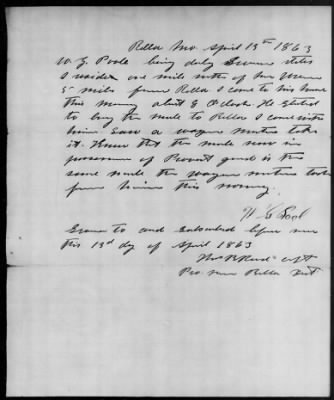 Rolla Mo. April 13th 1863
W. G. Poole being duly Sworn states
I reside one mile north of Mr
5 miles from Rolla I came to his house
this morning about 8 O'clock He started
to bring the mule to Rolla I came with
him Saw a wagon master take
it. Know that the mule now in
possession of Provost guard is the
same mule the wagon master took
from him this morning.
W. G. Pool
Sworn to and Subscribed before me
this 13th day of April 1863
Capt
Pro. Mar Rolla Dist